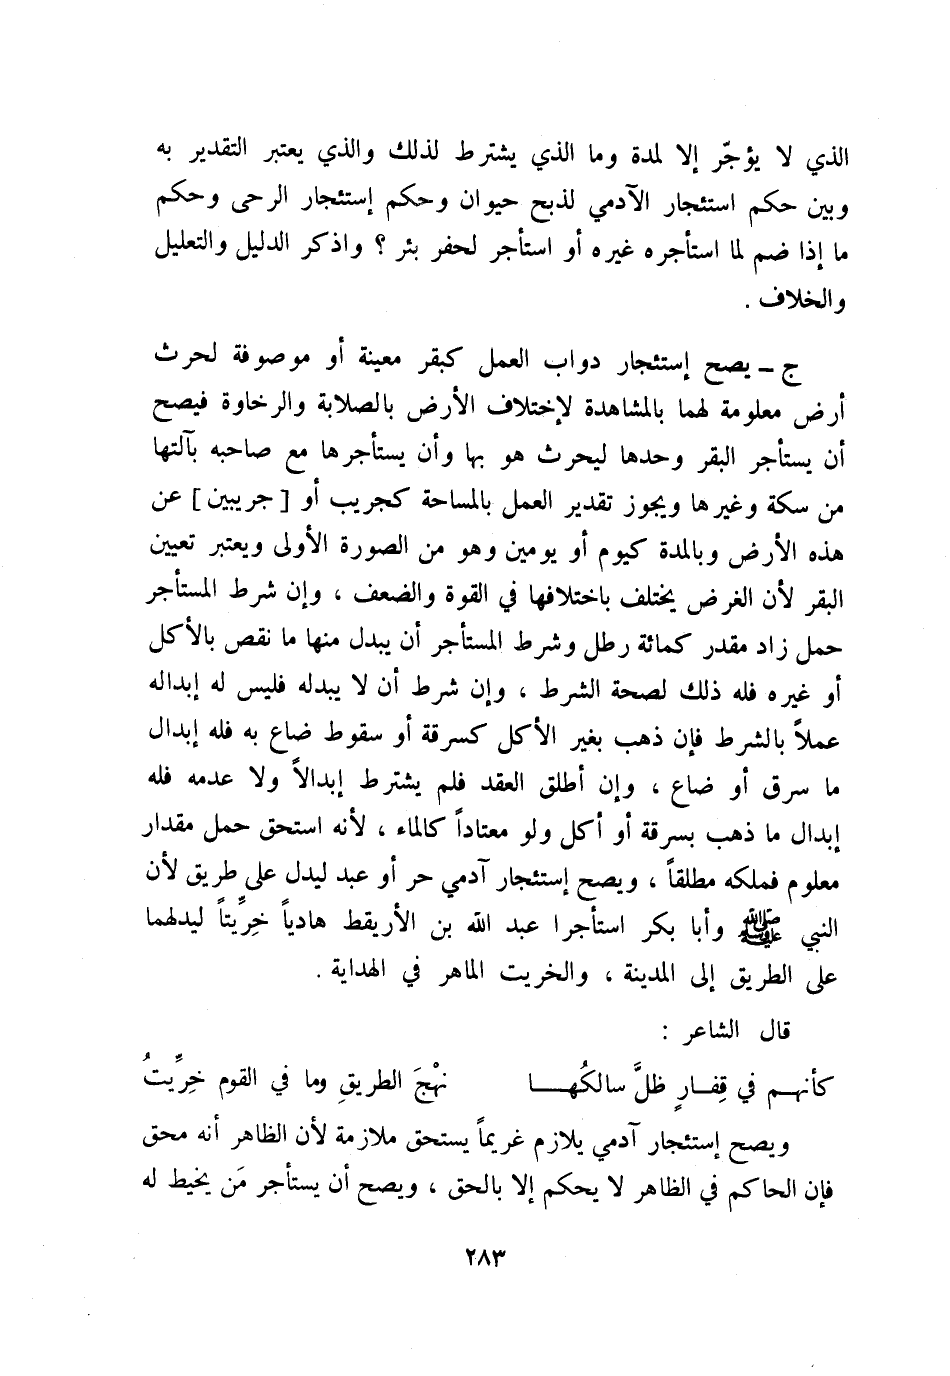 الذي لا يؤجّر إلا لمدة وما الذي يشترط لذلك والذي يعتبر التقدير به
وبين حكم استئجار الآدمي لذبح حيوان وحكم إستئجار الرحى وحكم
ما إذا ضم لما استأجره غيره أو استأجر لحفر بئر ؟ واذكر الدليل والتعليل
والخلاف .
ج ـ يصح إستئجار دواب العمل كبقر معينة أو موصوفة لحرث
أرض معلومة لهما بالمشاهدة لإختلاف الأرض بالصلابة والرخاوة فيصح
أن يستأجر البقر وحدها ليحرث هو بها وأن يستأجرها مع صاحبه بآلتها
من سكة وغيرها ويجوز تقدير العمل بالمساحة كجريب أو [ جريبين ] عن
هذه الأرض وبالمدة كيوم أو يومين وهو من الصورة الأولى ويعتبر تعيين
البقر لأن الغرض يختلف باختلافها في القوة والضعف ، وإن شرط المستأجر
حمل زاد مقدر كمائة رطل وشرط المستأجر أن يبدل منها ما نقص بالأكل
أو غيره فله ذلك لصحة الشرط ، وإن شرط أن لا يبدله فليس له إبداله
عملاً بالشرط فإن ذهب بغير الأكل كسرقة أو سقوط ضاع به فله إبدال
ما سرق أو ضاع ، وإن أطلق العقد فلم يشترط إبدالاً ولا عدمه فله
إبدال ما ذهب بسرقة أو أكل ولو معتاداً كالماء ، لأنه استحق حمل مقدار
معلوم فملكه مطلقاً ، ويصح إستئجار آدمي حر أو عبد ليدل على طريق لأن
النبي ﷺ وأبا بكر استأجرا عبد الله بن الأريقط هادياً خِرِّيتاً ليدلهما
على الطريق إلى المدينة ، والخريت الماهر في الهداية .
قال الشاعر :
كأنهـم في قِفـارٍ ظلَّ سالكُهـا نهْجَ الطريقِ وما في القوم خرِّيتُ
ويصح إستئجار آدمي يلازم غريماً يستحق ملازمة لأن الظاهر أنه محق
فإن الحاكم في الظاهر لا يحكم إلا بالحق ، ويصح أن يستأجر مَن يخيط له
٢٨٣